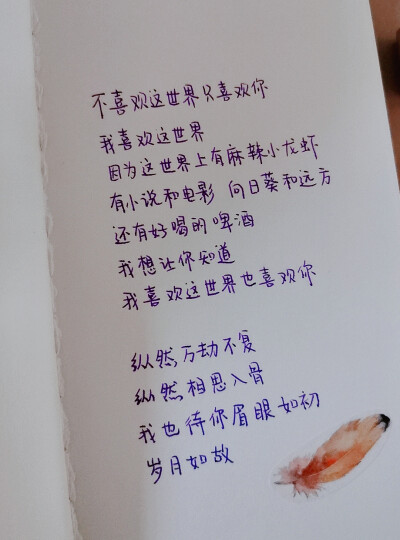 不喜欢这世界只喜欢你
我喜欢这世界
因为这世界上有麻辣小龙虾
有小说和电影 向日葵和远方
还有好喝的啤酒
我想让你知道
我喜欢这世界也喜欢你
纵然万劫不复
纵然相思入骨
我也待你眉眼如初
岁月如故